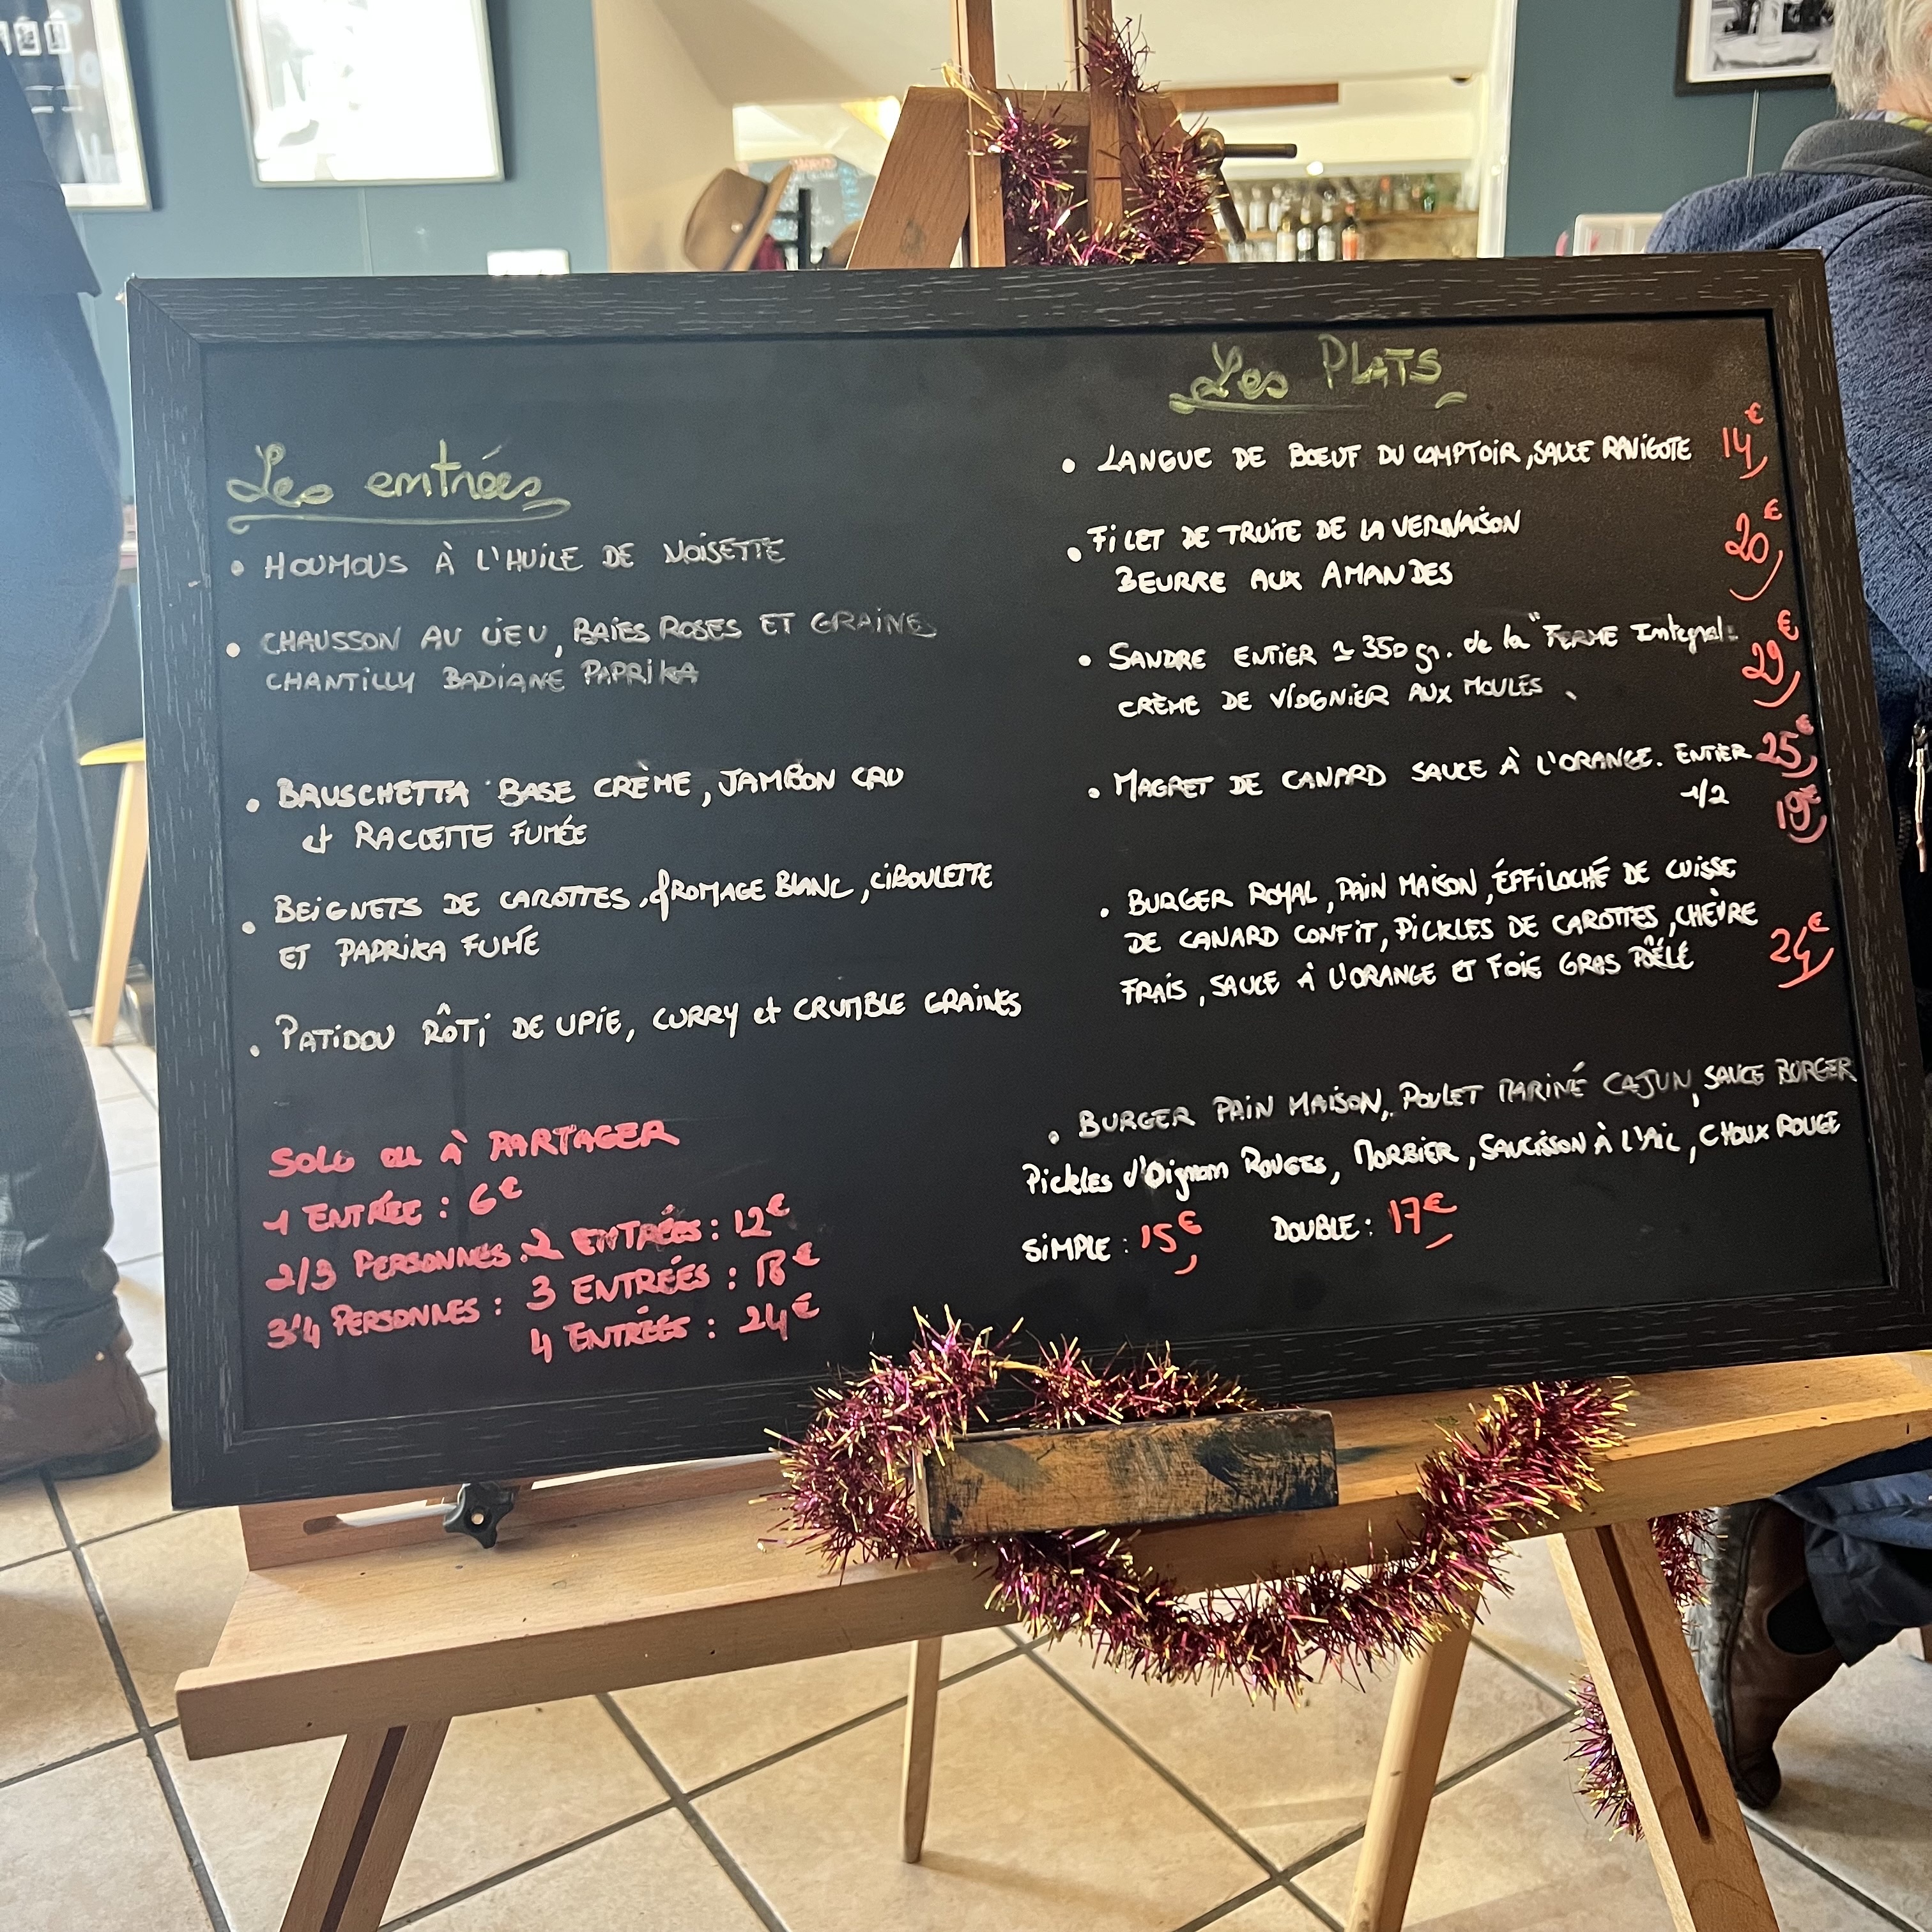 Les entrées
• HOUMOUS À L'HUILE DE NOISETTE
• CHAUSSON AU LIEU, BAIES ROSES ET GRAINES
CHANTILLY BADIANE PAPRIKA
• BRUSCHETTA BASE CRÈME, JAMBON CRU
et RACLETTE FUMÉE
• BEIGNETS DE CAROTTES, FROMAGE BLANC, CIBOULETTE
ET PAPRIKA FUMÉ
• PATIDOU RÔTI DE UPIE, CURRY et CRUMBLE GRAINES
SOLO OU À PARTAGER
1 ENTRÉE : 6€
2/3 PERSONNES : 2 ENTRÉES : 12€
3/4 PERSONNES : 3 ENTRÉES : 18€
4 ENTRÉES : 24€
Les PLATS
• LANGUE DE BOEUF DU COMPTOIR, SAUCE RAVIGOTE 14€
• FILET DE TRUITE DE LA VERNAISON
BEURRE AUX AMANDES 20€
• SANDRE ENTIER ≃ 350 gr. de la "FERME Integral"
CRÈME DE VIOGNIER AUX MOULES 29€
• MAGRET DE CANARD SAUCE À L'ORANGE. ENTIER 25€
1/2 19€
• BURGER ROYAL, PAIN MAISON, ÉFFILOCHÉ DE CUISSE
DE CANARD CONFIT, PICKLES DE CAROTTES, CHÈVRE
FRAIS, SAUCE À L'ORANGE ET FOIE GRAS POÊLÉ 24€
• BURGER PAIN MAISON, POULET MARINÉ CAJUN, SAUCE BURGER
Pickles d'Oignon ROUGES, MORBIER, SAUCISSON À L'AIL, CHOUX ROUGE
SIMPLE : 15€ DOUBLE : 17€